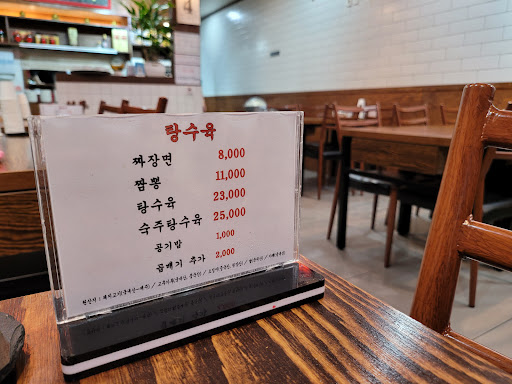 탕수육
짜장면 8,000
짬뽕 11,000
탕수육 23,000
숙주탕수육 25,000
공기밥 1,000
곱배기 추가 2,000
원산지 :